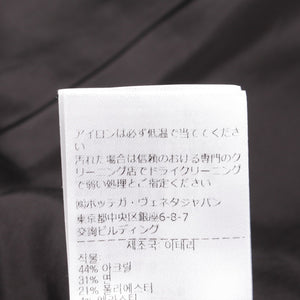 アイロンは必ず低温で当ててくださ
い
汚れた場合は信頼のおける専門のク
リーニング店でドライクリーニング
で弱い処理とご指定ください
㈱ボッテガ・ヴェネタジャパン
東京都中央区銀座6-8-7
交詢ビルディング
제조국 이태리
직물
44% 아크릴
31% 면
21% 폴리에스터